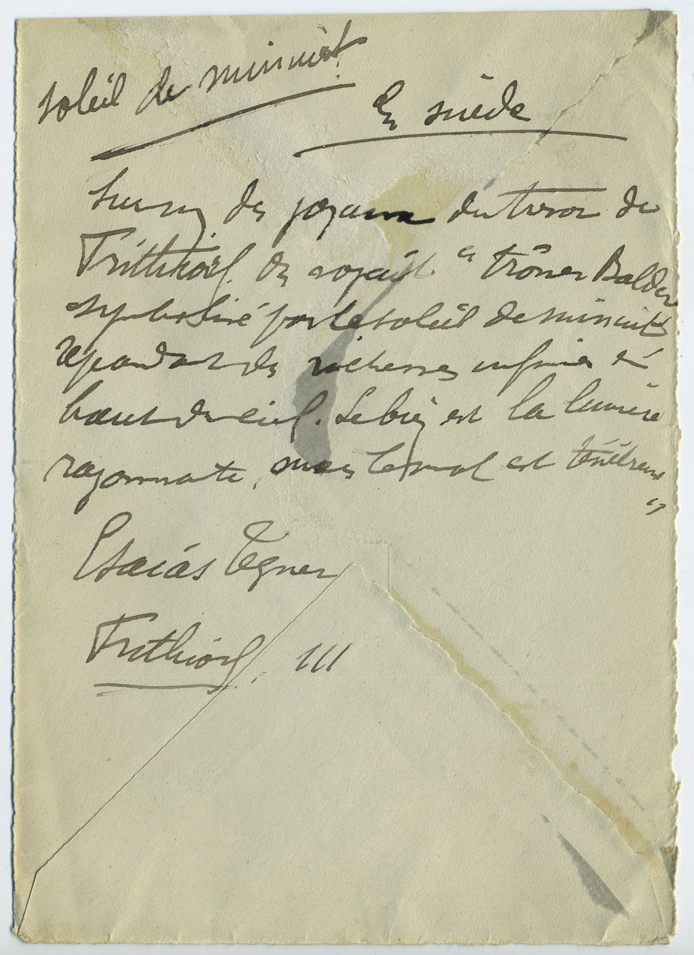 soleil de minuit.
En suède
Sur un des joyaux du tresor de
Frithiof on voyait " trôner Balder
symbolisé par le soleil de minuit
repandant des richesses infinies du
haut du ciel. Le bien est la lumière
rayonnante, mais le mal est ténébreux
"
Esaias Tegner
Frithiof. III